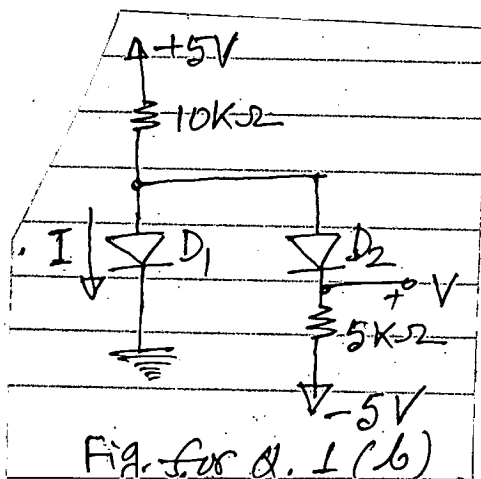 +5V
10KΩ
I
D1
D2
V
+
5KΩ
-5V
Fig. for Q. 1 (b)